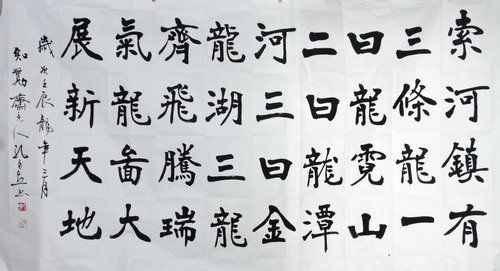 索河鎮有
三條龍一
曰龍霓山
二曰龍潭
河三曰金
龍湖三龍
齊飛騰瑞
氣龍啚大
展新天地
歲次壬辰龍年三月
知勤齋主人孔